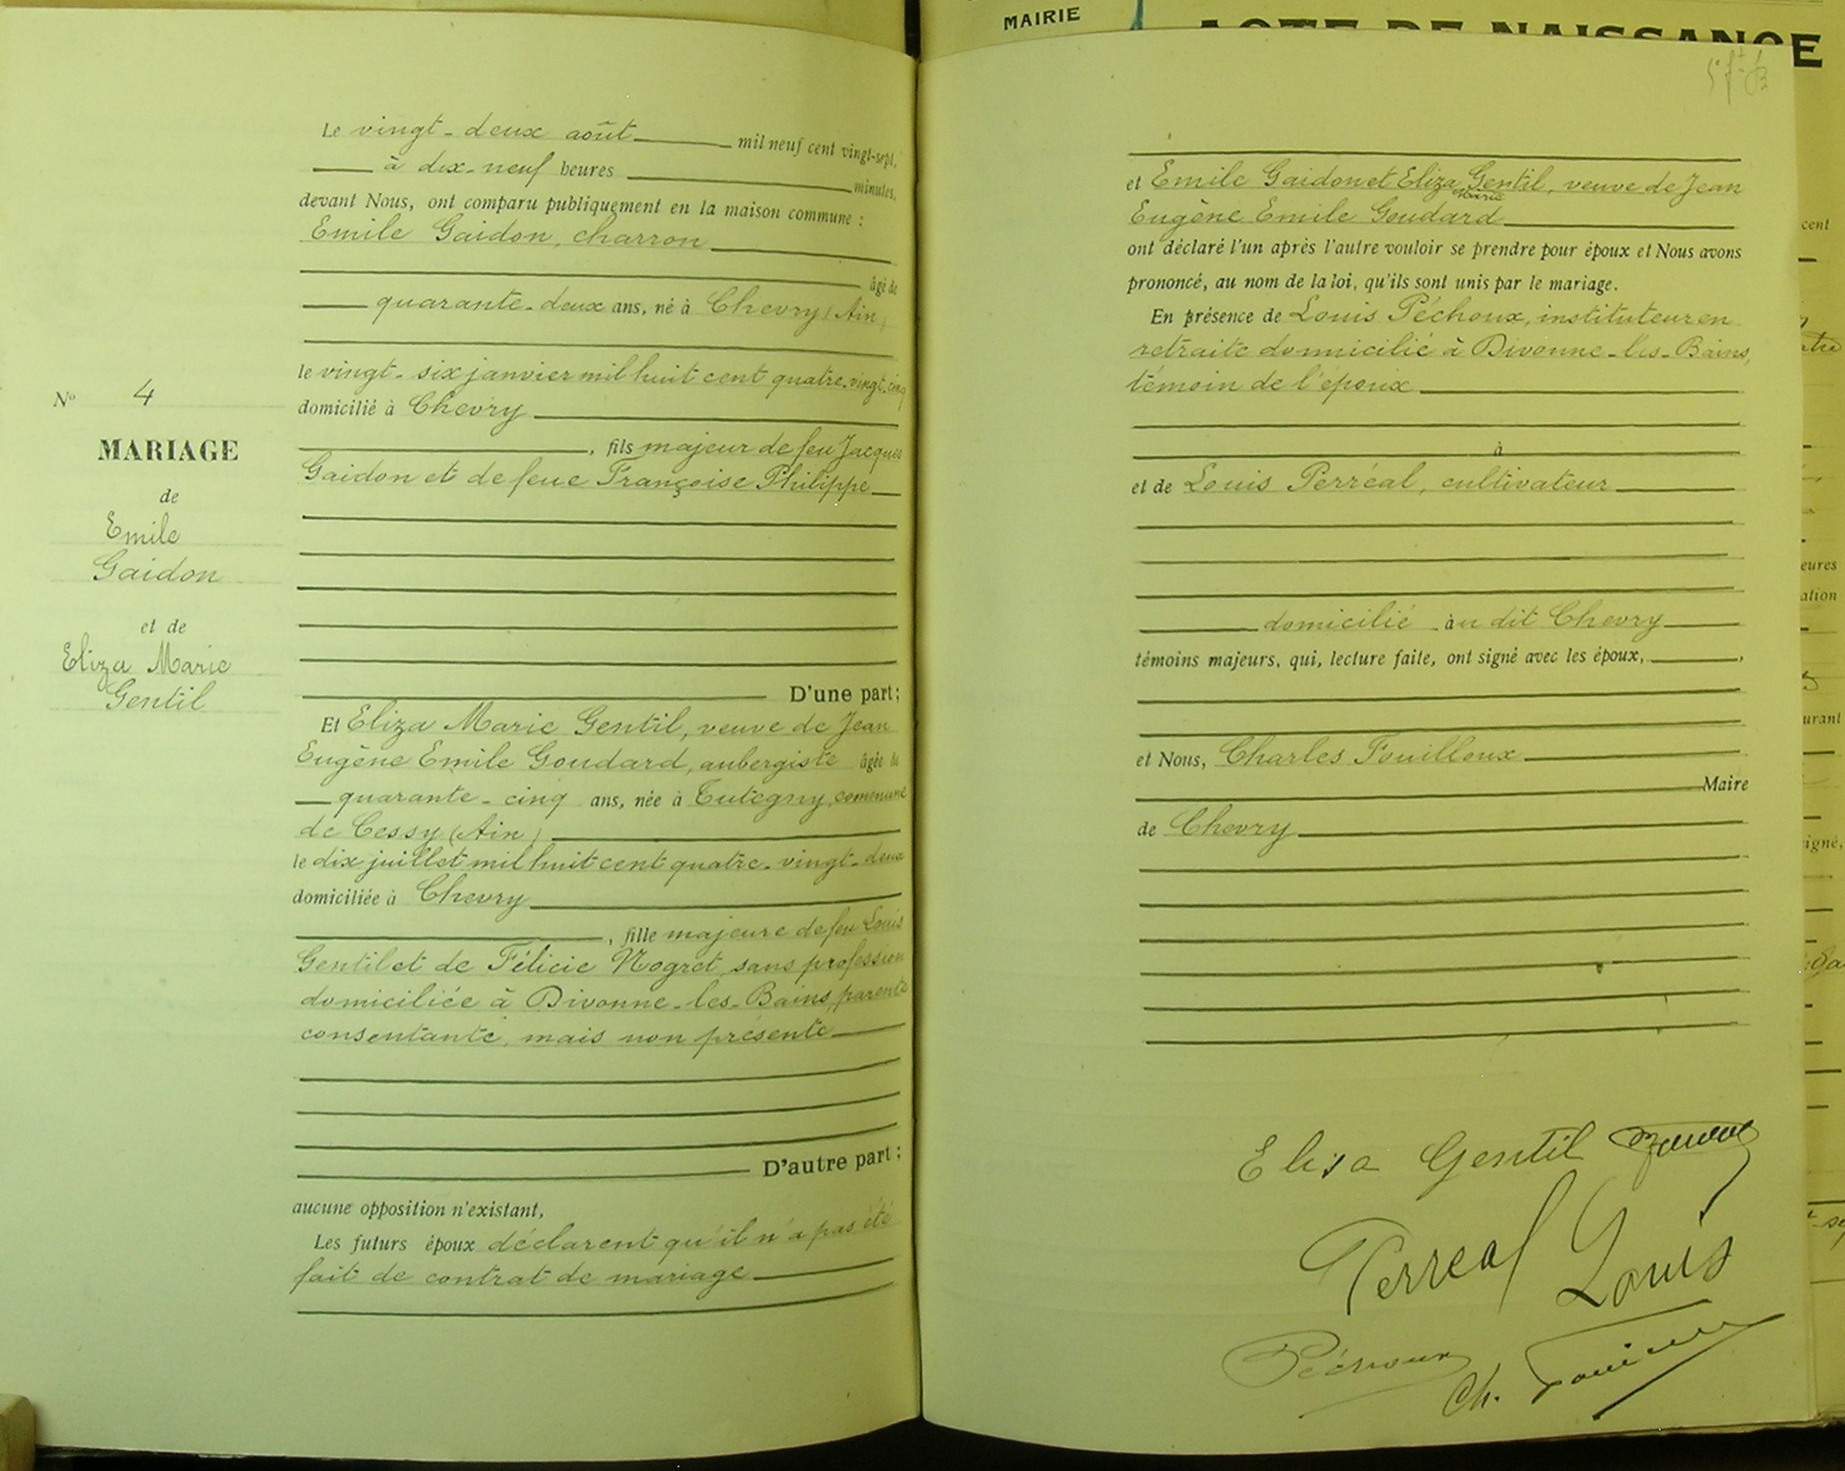 Le vingt-deux août mil neuf cent vingt-sept,
à dix-neuf heures minutes,
devant Nous, ont comparu publiquement en la maison commune :
Emile Gaidon, charron
âgé de
quarante-deux ans, né à Chevry (Ain)
le vingt-six janvier mil huit cent quatre-vingt-cinq
domicilié à Chevry
, fils majeur de feu Jacques
Gaidon et de feue Françoise Philippe
D'une part ;
Et Eliza Marie Gentil, veuve de Jean
Eugène Emile Goudard, aubergiste âgée de
quarante-cinq ans, née à Tutegny, commune
de Cessy (Ain)
le dix juillet mil huit cent quatre-vingt-deux
domiciliée à Chevry
, fille majeure de feu Louis
Gentil et de Félicie Nogret, sans profession
domiciliée à Divonne-les-Bains, parente
consentante, mais non présente
D'autre part ;
aucune opposition n'existant,
Les futurs époux déclarent qu'il n'a pas été
fait de contrat de mariage
N° 4
MARIAGE
de
Emile
Gaidon
et de
Eliza Marie
Gentil
MAIRIE
ACTE DE NAISSANCE
et Emile Gaidon et Eliza Marie Gentil, veuve de Jean
Eugène Emile Goudard
ont déclaré l'un après l'autre vouloir se prendre pour époux et Nous avons
prononcé, au nom de la loi, qu'ils sont unis par le mariage.
En présence de Louis Péchoux, instituteur en
retraite domicilié à Divonne-les-Bains,
témoin de l'époux
à
et de Louis Perréal, cultivateur
domicilié au dit Chevry
témoins majeurs, qui, lecture faite, ont signé avec les époux,
et Nous, Charles Fouilloux
Maire
de Chevry
Elisa Gentil
Perreal Louis
Péchoux
Ch. Fouilloux
cent
eures
ation
urant
igné,